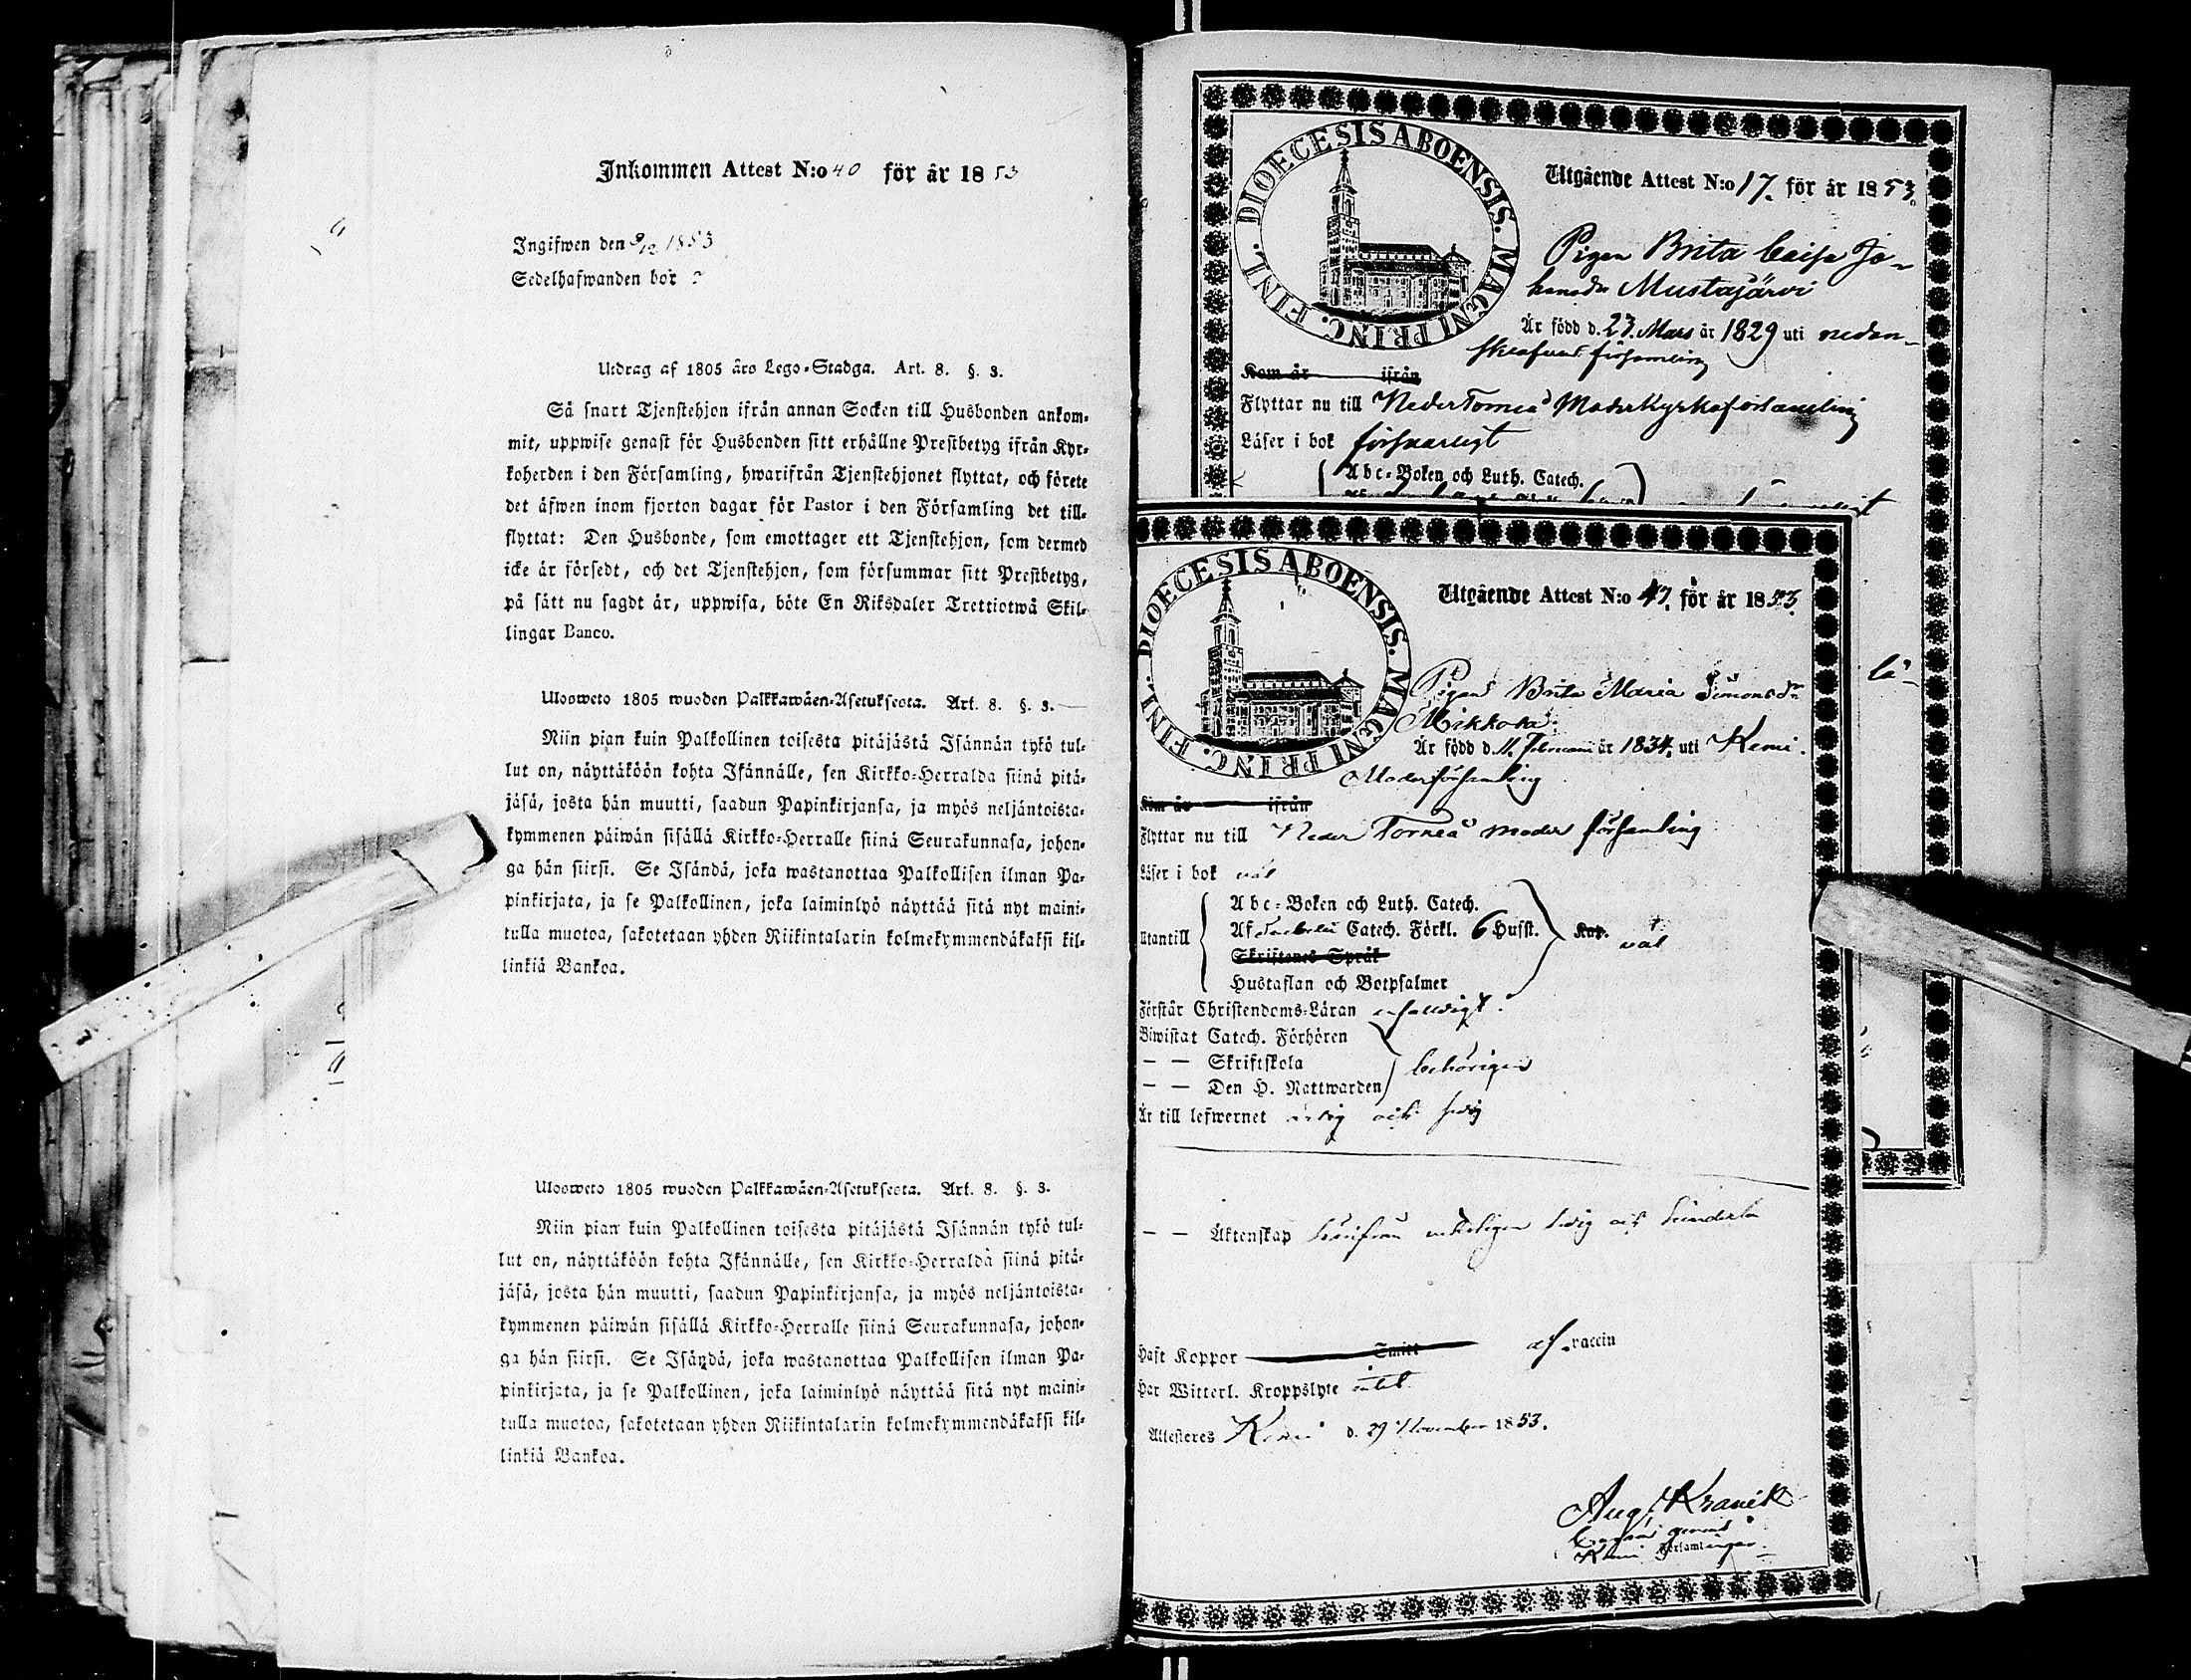 Inkommen Attest N:o 40 för år 1853
Ingifwen den 9/12 1853
Sedelhafwanden bor
Utdrag af 1805 års Lego-Stadga. Art. 8. §. 3.
Så snart Tjenstehjon ifrån annan Socken till Husbonden ankom-
mit, uppwise genast för Husbonden sitt erhållne Prestbetyg ifrån Kyr-
koherden i den Församling, hwarifrån Tjenstehjonet flyttat, och förete
det äfwen inom fjorton dagar för Pastor i den Församling det till-
flyttat: Den Husbonde, som emottager ett Tjenstehjon, som dermed
icke är försedt, och det Tjenstehjon, som försummar sitt Prestbetyg,
på sätt nu sagdt är, uppwisa, böte En Riksdaler Trettiotwå Skil-
lingar Banco.
Ulosweto 1805 wuoden Palkkawäen-Asetuksesta. Art. 8. §. 3.
Niin pian kuin Palkollinen toisesta pitäjästä Isännän tykö tul-
lut on, näyttäköön kohta Isännälle, sen Kirkko-Herralda siinä pitä-
jäsä, josta hän muutti, saadun Papinkirjansa, ja myös neljäntoista-
kymmenen päiwän sisällä Kirkko-Herralle siinä Seurakunnasa, johon-
ga hän siirsi. Se Isändä, joka wastanottaa Palkollisen ilman Pa-
pinkirjata, ja se Palkollinen, joka laiminlyö näyttää sitä nyt maini-
tulla muotoa, sakotetaan yhden Riikintalarin kolmekymmendäkaksi kil-
linkiä Bankoa.
Ulosweto 1805 wuoden Palkkawäen-Asetuksesta. Art. 8. §. 3.
Niin pian kuin Palkollinen toisesta pitäjästä Isännän tykö tul-
lut on, näyttäköön kohta Isännälle, sen Kirkko-Herralda siinä pitä-
jäsä, josta hän muutti, saadun Papinkirjansa, ja myös neljäntoista-
kymmenen päiwän sisällä Kirkko-Herralle siinä Seurakunnasa, johon-
ga hän siirsi. Se Isändä, joka wastanottaa Palkollisen ilman Pa-
pinkirjata, ja se Palkollinen, joka laiminlyö näyttää sitä nyt maini-
tulla muotoa, sakotetaan yhden Riikintalarin kolmekymmendäkaksi kil-
linkiä Bankoa.
DIOECESIS ABOENSIS. MAGNI PRINC. FINL.
Utgående Attest N:o 17. för år 1853.
Pigan Brita Caisa Jo-
hansdr Mustajärvi
Är född d. 23 Mars år 1829 uti nedan-
skrefvne församling
Kom år ifrån
Flyttar nu till Neder Torneå Moderkyrkoförsamling
Läser i bok försvarligt
Abc-Boken och Luth. Catech.
lä-
DIOECESIS ABOENSIS. MAGNI PRINC. FINL.
Utgående Attest N:o 47. för år 1853.
Pigan Brita Maria Simonsdr
Mikkola
Är född d. 11. Februari år 1834. uti Kemi
Moderförsamling
Kom år ifrån
Flyttar nu till Neder Torneå moder församling
Läser i bok väl
Utantill
Abc-Boken och Luth. Catech.
Af Catech. Förkl. 6 Husst.
Skriftenes Språk
Hustaflan och Botpsalmer
Kap. väl
Förstår Christendoms-Läran enfaldigt.
Biwistat Catech. Förhören
— — Skriftskola
— — Den H. Nattwarden
behörigen
Är till lefwernet ärlig och frejdig
— — Äktenskap ledig och
Haft Koppor Smitt af vaccin
Har Witterl. Kroppslyte intet
Attesteras Kemi d. 29 November 1853.
Aug. Kranck
Kemi Församlingar